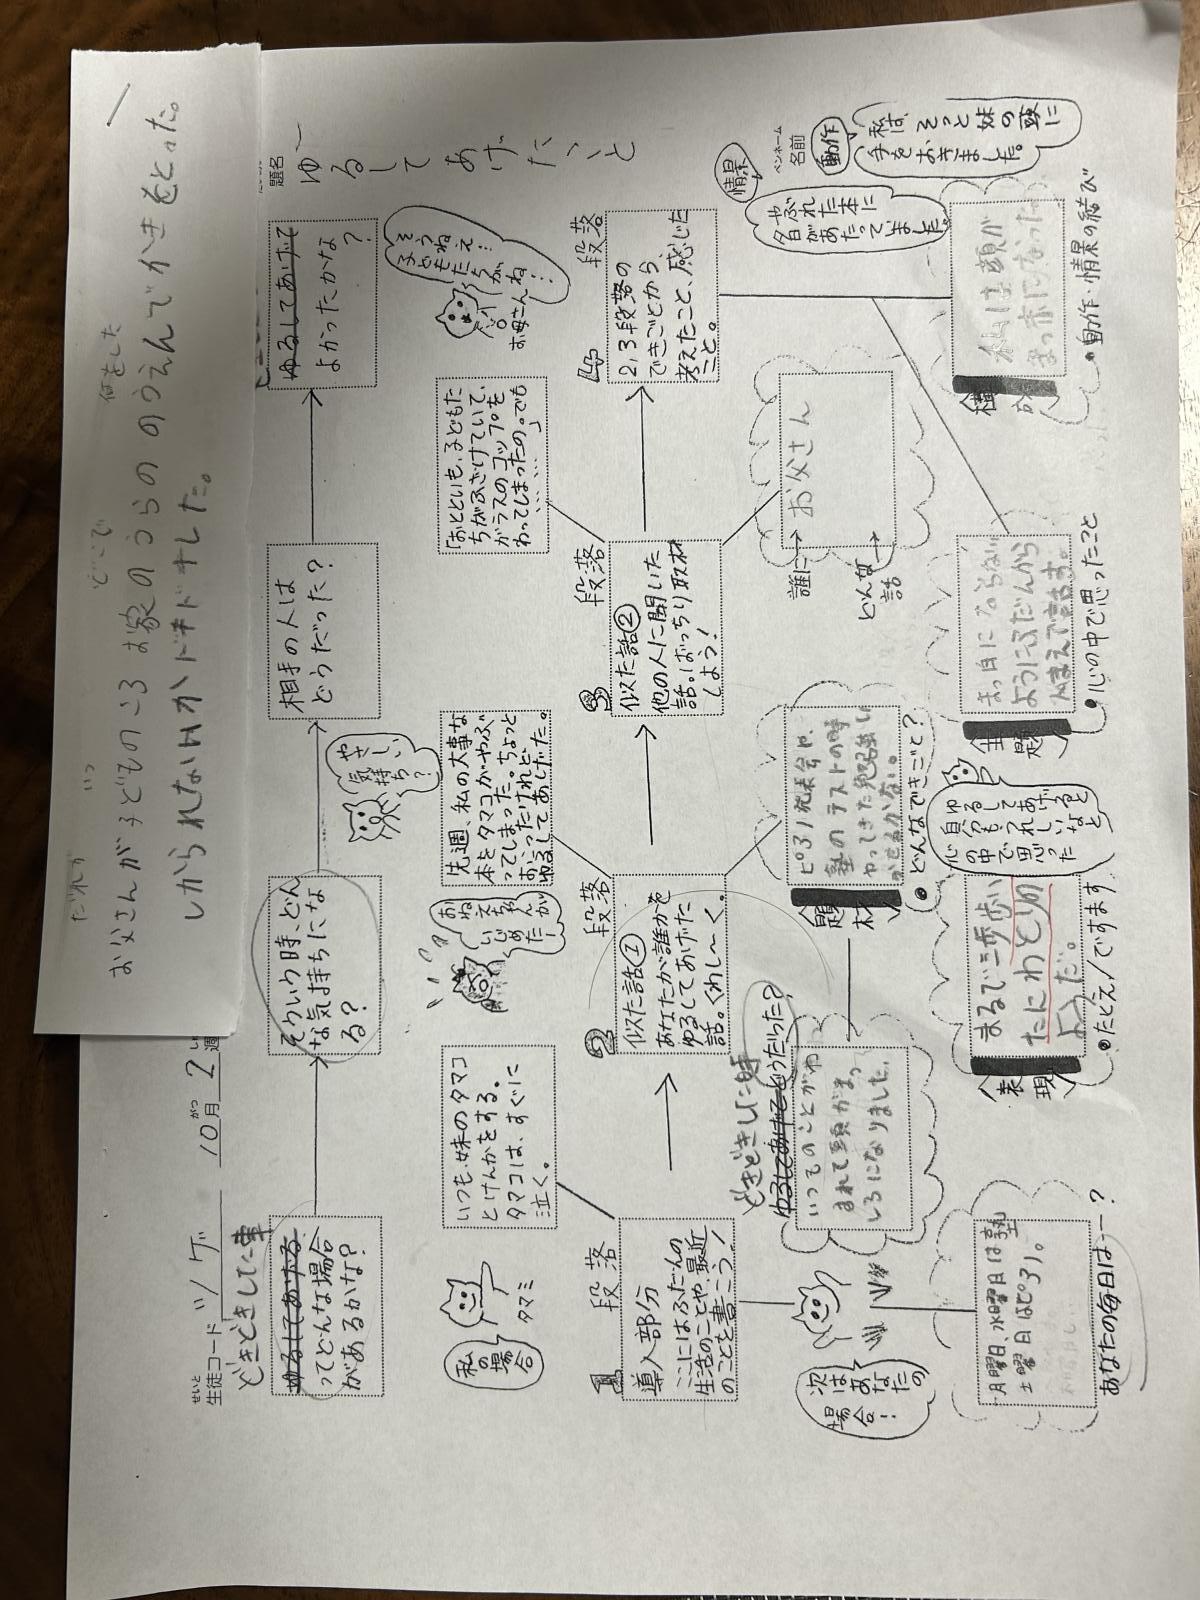 だれが
いつ
どこで
何をした
お父さんが子どものころお家のうらののうえんでかきをとった。
しかられないかドキドキした。
せいと
生徒コード
ツゲ
10月2週
がつ
題名
ゆるしてあげたいと
ペンネーム
名前
どきどきした事
ゆるしてあげる
ってどんな場合
があるかな?
そういう時、どん
な気持ちにな
る?
相手の人は
どうだった?
ゆるしてあげて
よかったかな
?
私の
場合
タマミ
いつも、妹のタマコ
とけんかをする。
タマコは、すぐに
泣く。
おねえちゃんが
いじめたー!
先週、私の大事な
本をタマコがやぶ
ってしまった。ちょっと
おこったけれど、
ゆるしてあげました。
やさしい
気持ち?
「おとといも、子どもた
ちがふざけていて、
ガラスのコップを
わってしまったの。でも
……」
お母さん
1
段落
導入部分
ここにはふだんの
生活のことや、最近
のことを書こう!
2
段落
似た話①
あなたが誰かを
ゆるしてあげた
話。くわし~く。
3
段落
似た話②
他の人に聞いた
話。ばっちり取材
しよう!
4
段落
2,3段落の
できごとから
考えたこと、感じた
こと。
次は
あなたの
場合!
どきどきした時
ゆるしてあげてどうだった?
いつものことがわ
まれて頭がまっ
しろになりました。
題材
ピアノ発表会や、
塾のテストの時
どんなできごと?
誰に→
お父さん
どんな話→
情景
やぶれた本に
夕日があたっていました。
動作
私は、そっと妹の頭に
手をおきました。
月曜日、水曜日は塾
土曜日はピアノ。
あなたの毎日は——?
表現
まるで三歩歩い
たにわとりの
ようだ。
●たとえ/ですます
ゆるしてあげると
自分もうれしいなと
心の中で思った
主題
まっ白にならない
ようにふだんから
●心の中で思ったこと
構成
私は顔が
まっ赤になった。
●動作・情景の結び